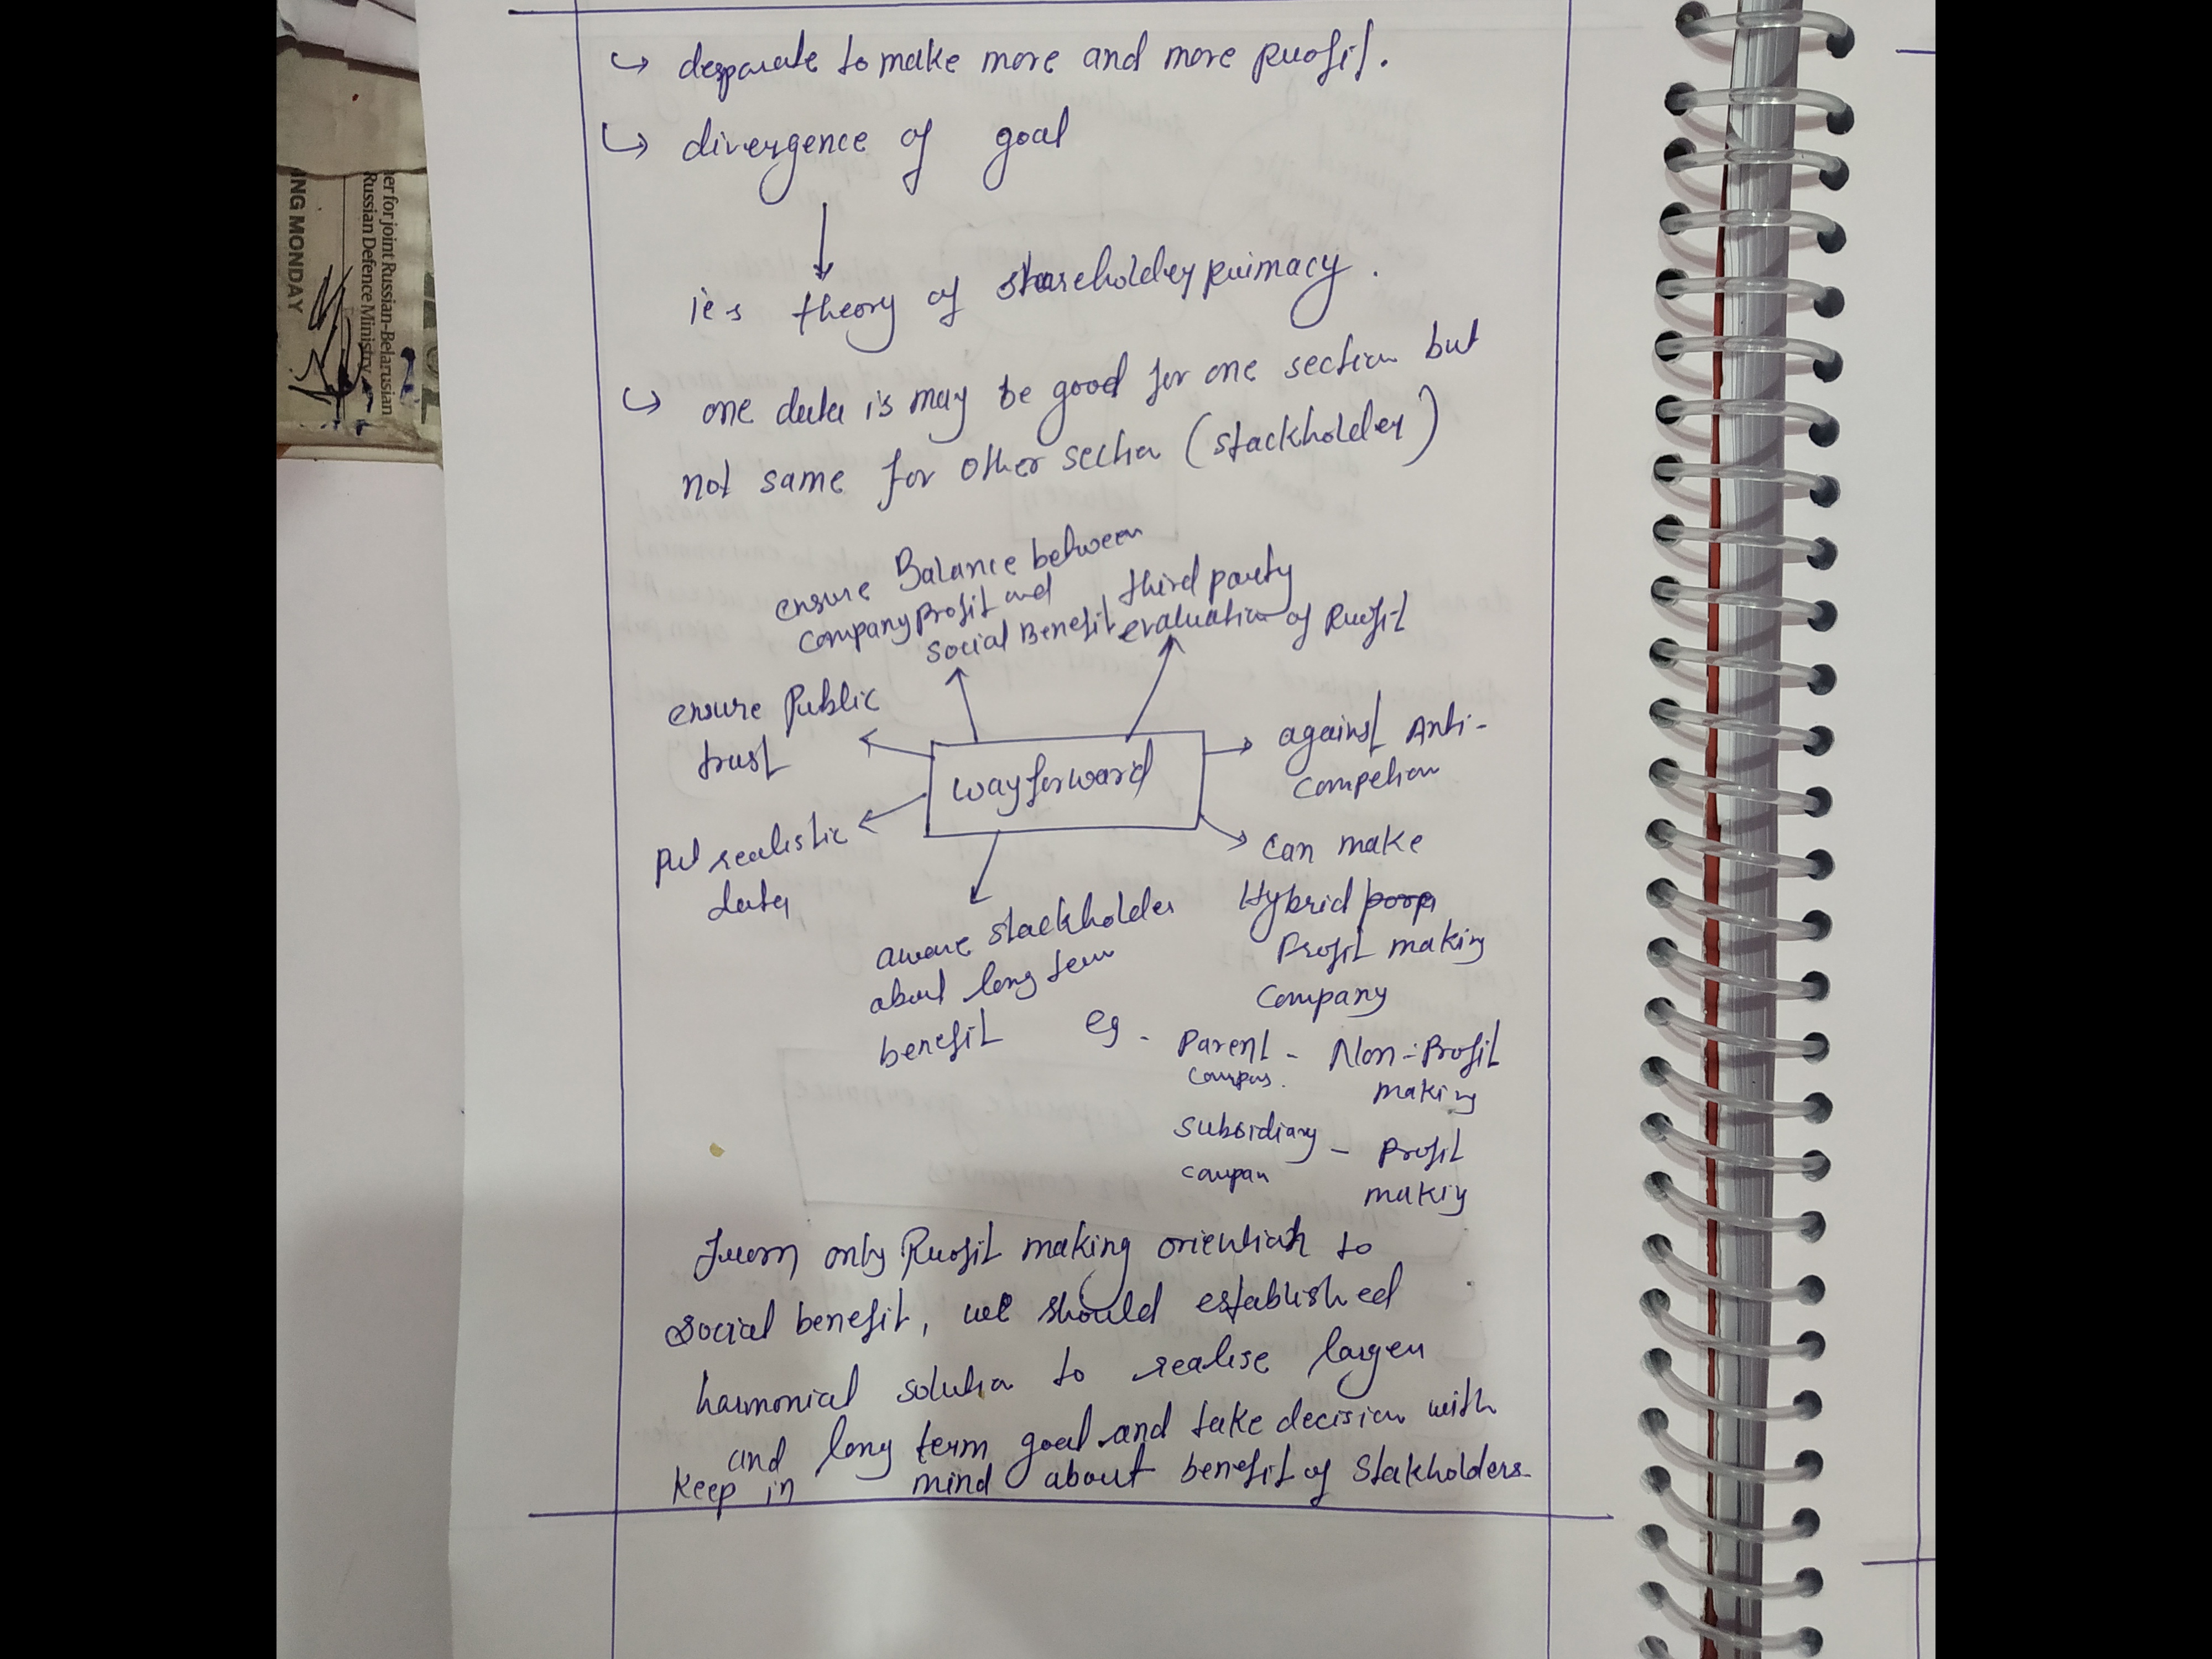 ↳ desparate to make more and more profit.
↳ divergence of goal
↓
ies theory of shareholder primacy.
↳ one data is may be good for one section but
not same for other section (stackholder)
ensure Balance between
company profit and
social Benefit
third party
evaluation of Profit
ensure Public
trust
way forward
against Anti-
Compettion
put realistic
data
can make
Hybrid
Profit making
Company
aware stackholder
about long term
benefit
eg - Parent - Non-Profit
making
Subsidiary - Profit
compan
making
only Profit making orientiah to
social benefit, we should established
harmonial solution to realise larger
and long term goal and take decision with
keep in mind about benefit of Stakholders
ING MONDAY
er for joint Russian-Belarusian
Russian Defence Ministry